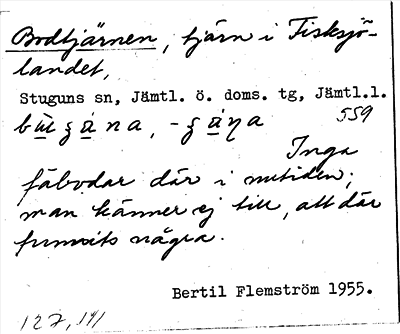 Bodtjärnen, tjärn i Fisksjö-
landet,
Stuguns sn, Jämtl. ö. doms. tg, Jämtl.l.
559
Inga
fäbodar där i nutiden;
man känner ej till, att där
funnits några.
Bertil Flemström 1955.
127, 141